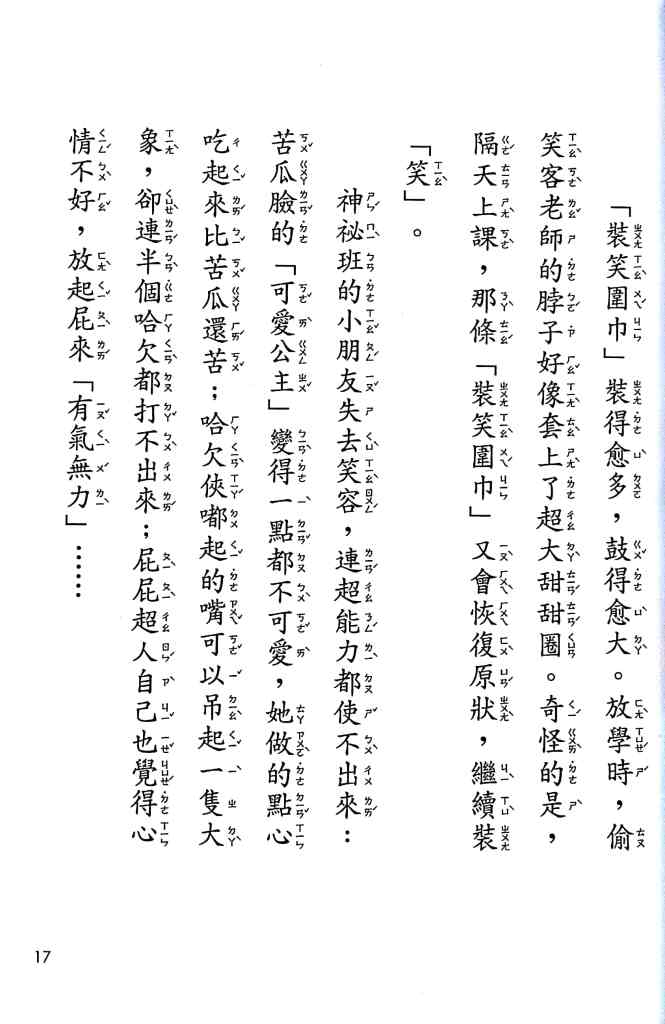 「裝笑圍巾」裝得愈多，鼓得愈大。放學時，偷
笑客老師的脖子好像套上了超大甜甜圈。奇怪的是，
隔天上課，那條「裝笑圍巾」又會恢復原狀，繼續裝
「笑」。
神祕班的小朋友失去笑容，連超能力都使不出來：
苦瓜臉的「可愛公主」變得一點都不可愛，她做的點心
吃起來比苦瓜還苦；哈欠俠嘟起的嘴可以吊起一隻大
象，卻連半個哈欠都打不出來；屁屁超人自己也覺得心
情不好，放起屁來「有氣無力」……
17